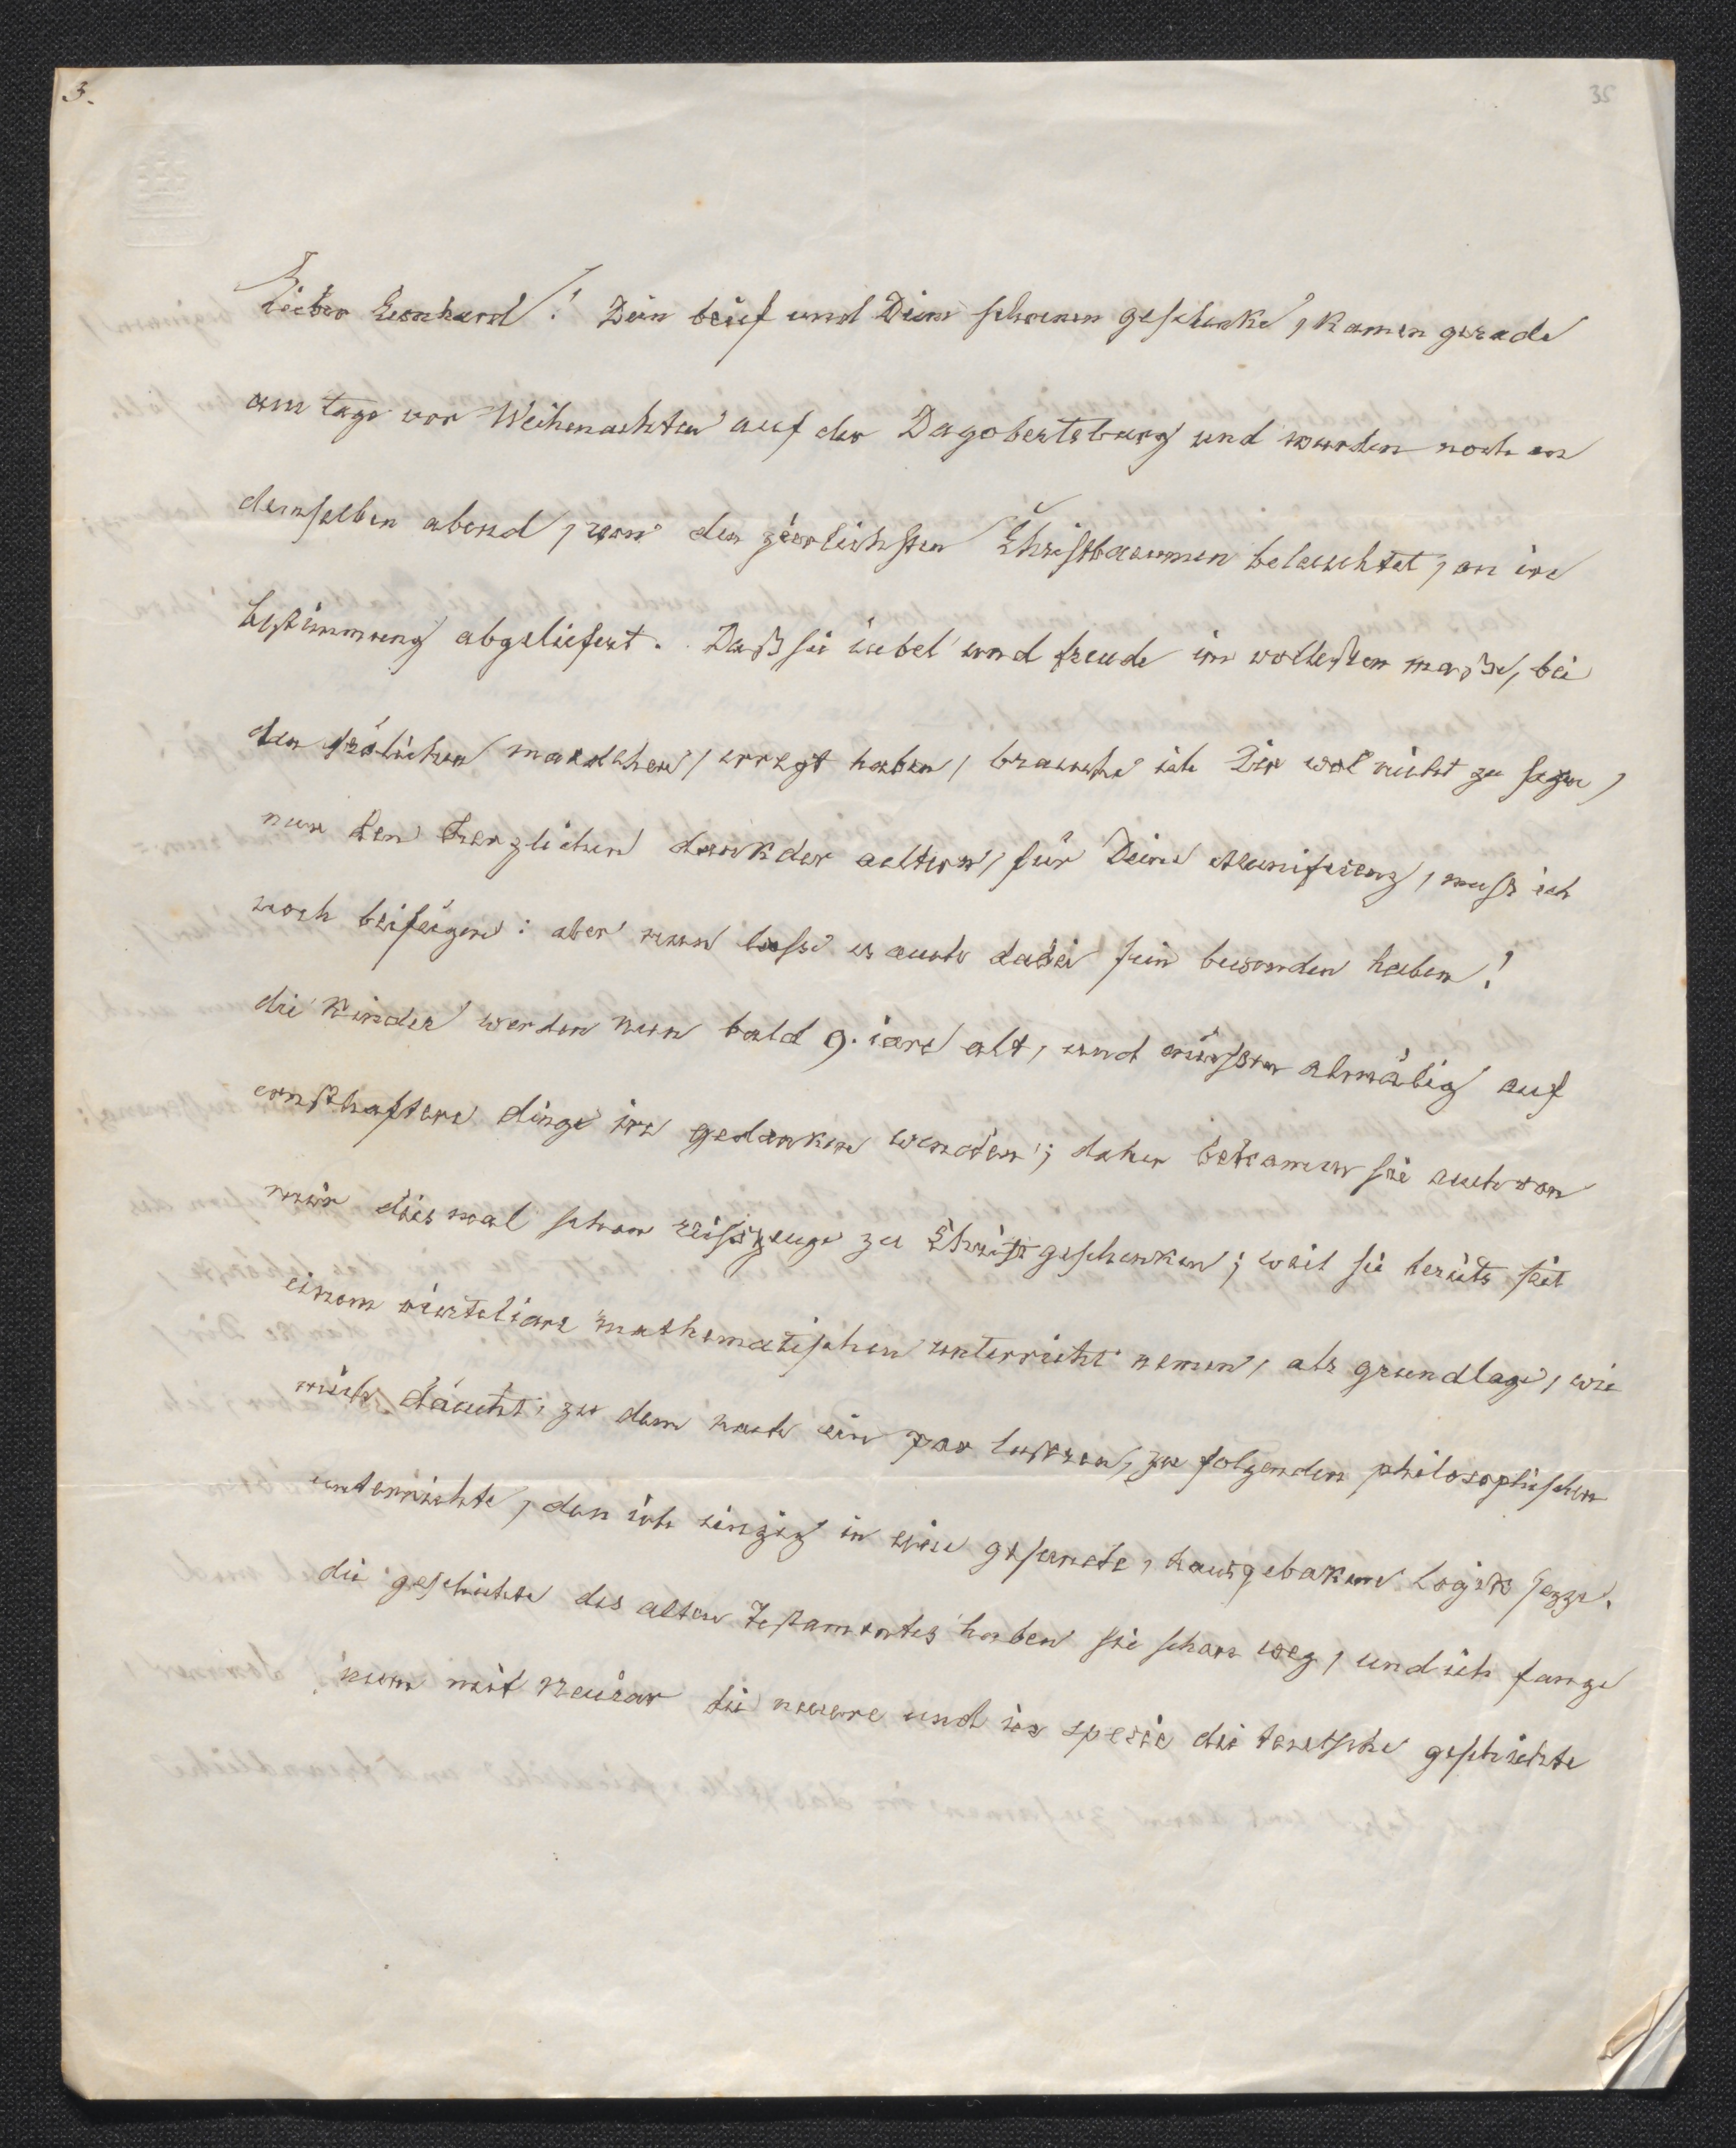 3.
35
Lieber Leonhard! Dein brief und Deine schoenen geschenke, kamen gerade
am tage vor Weihenachten auf der Dagobertsburg und wurden noch an
demselben abend, von den zierlichsten Christbaeumen beleuchtet, an ire
bestimmung abgeliefert. Daß sie iubel und freude im vollesten maaße, bei
den frölichen maedchen, erregt haben, brauche ich Dir wol nicht zu sagen,
nur den herzlichen dank der aeltern, für Deine Munificenz, muß ich
noch beifügen: aber nun lasse es auch dabei sein bewenden haben!
die kinder werden nun bald 9. iare alt, und müssen almälig auf
ernsthaftere dinge ire gedanken wenden; daher bekamen sie auch von
mir diesmal schon reisszeuge zu Christgeschenken; weil sie bereits seit
einem vierteliare mathematischen unterricht nemen, als grundlage, wie
mich däucht, zu dem nach ein par lustren, zu folgenden philosophischen
unterrichte, den ich einzig in eine gesunde, hausgebakene Logik sezze.
die geschichte des alten Testamentes haben sie schon weg, und ich fange
nun mit Neuiar die neuere und in specie die teutsche geschichte